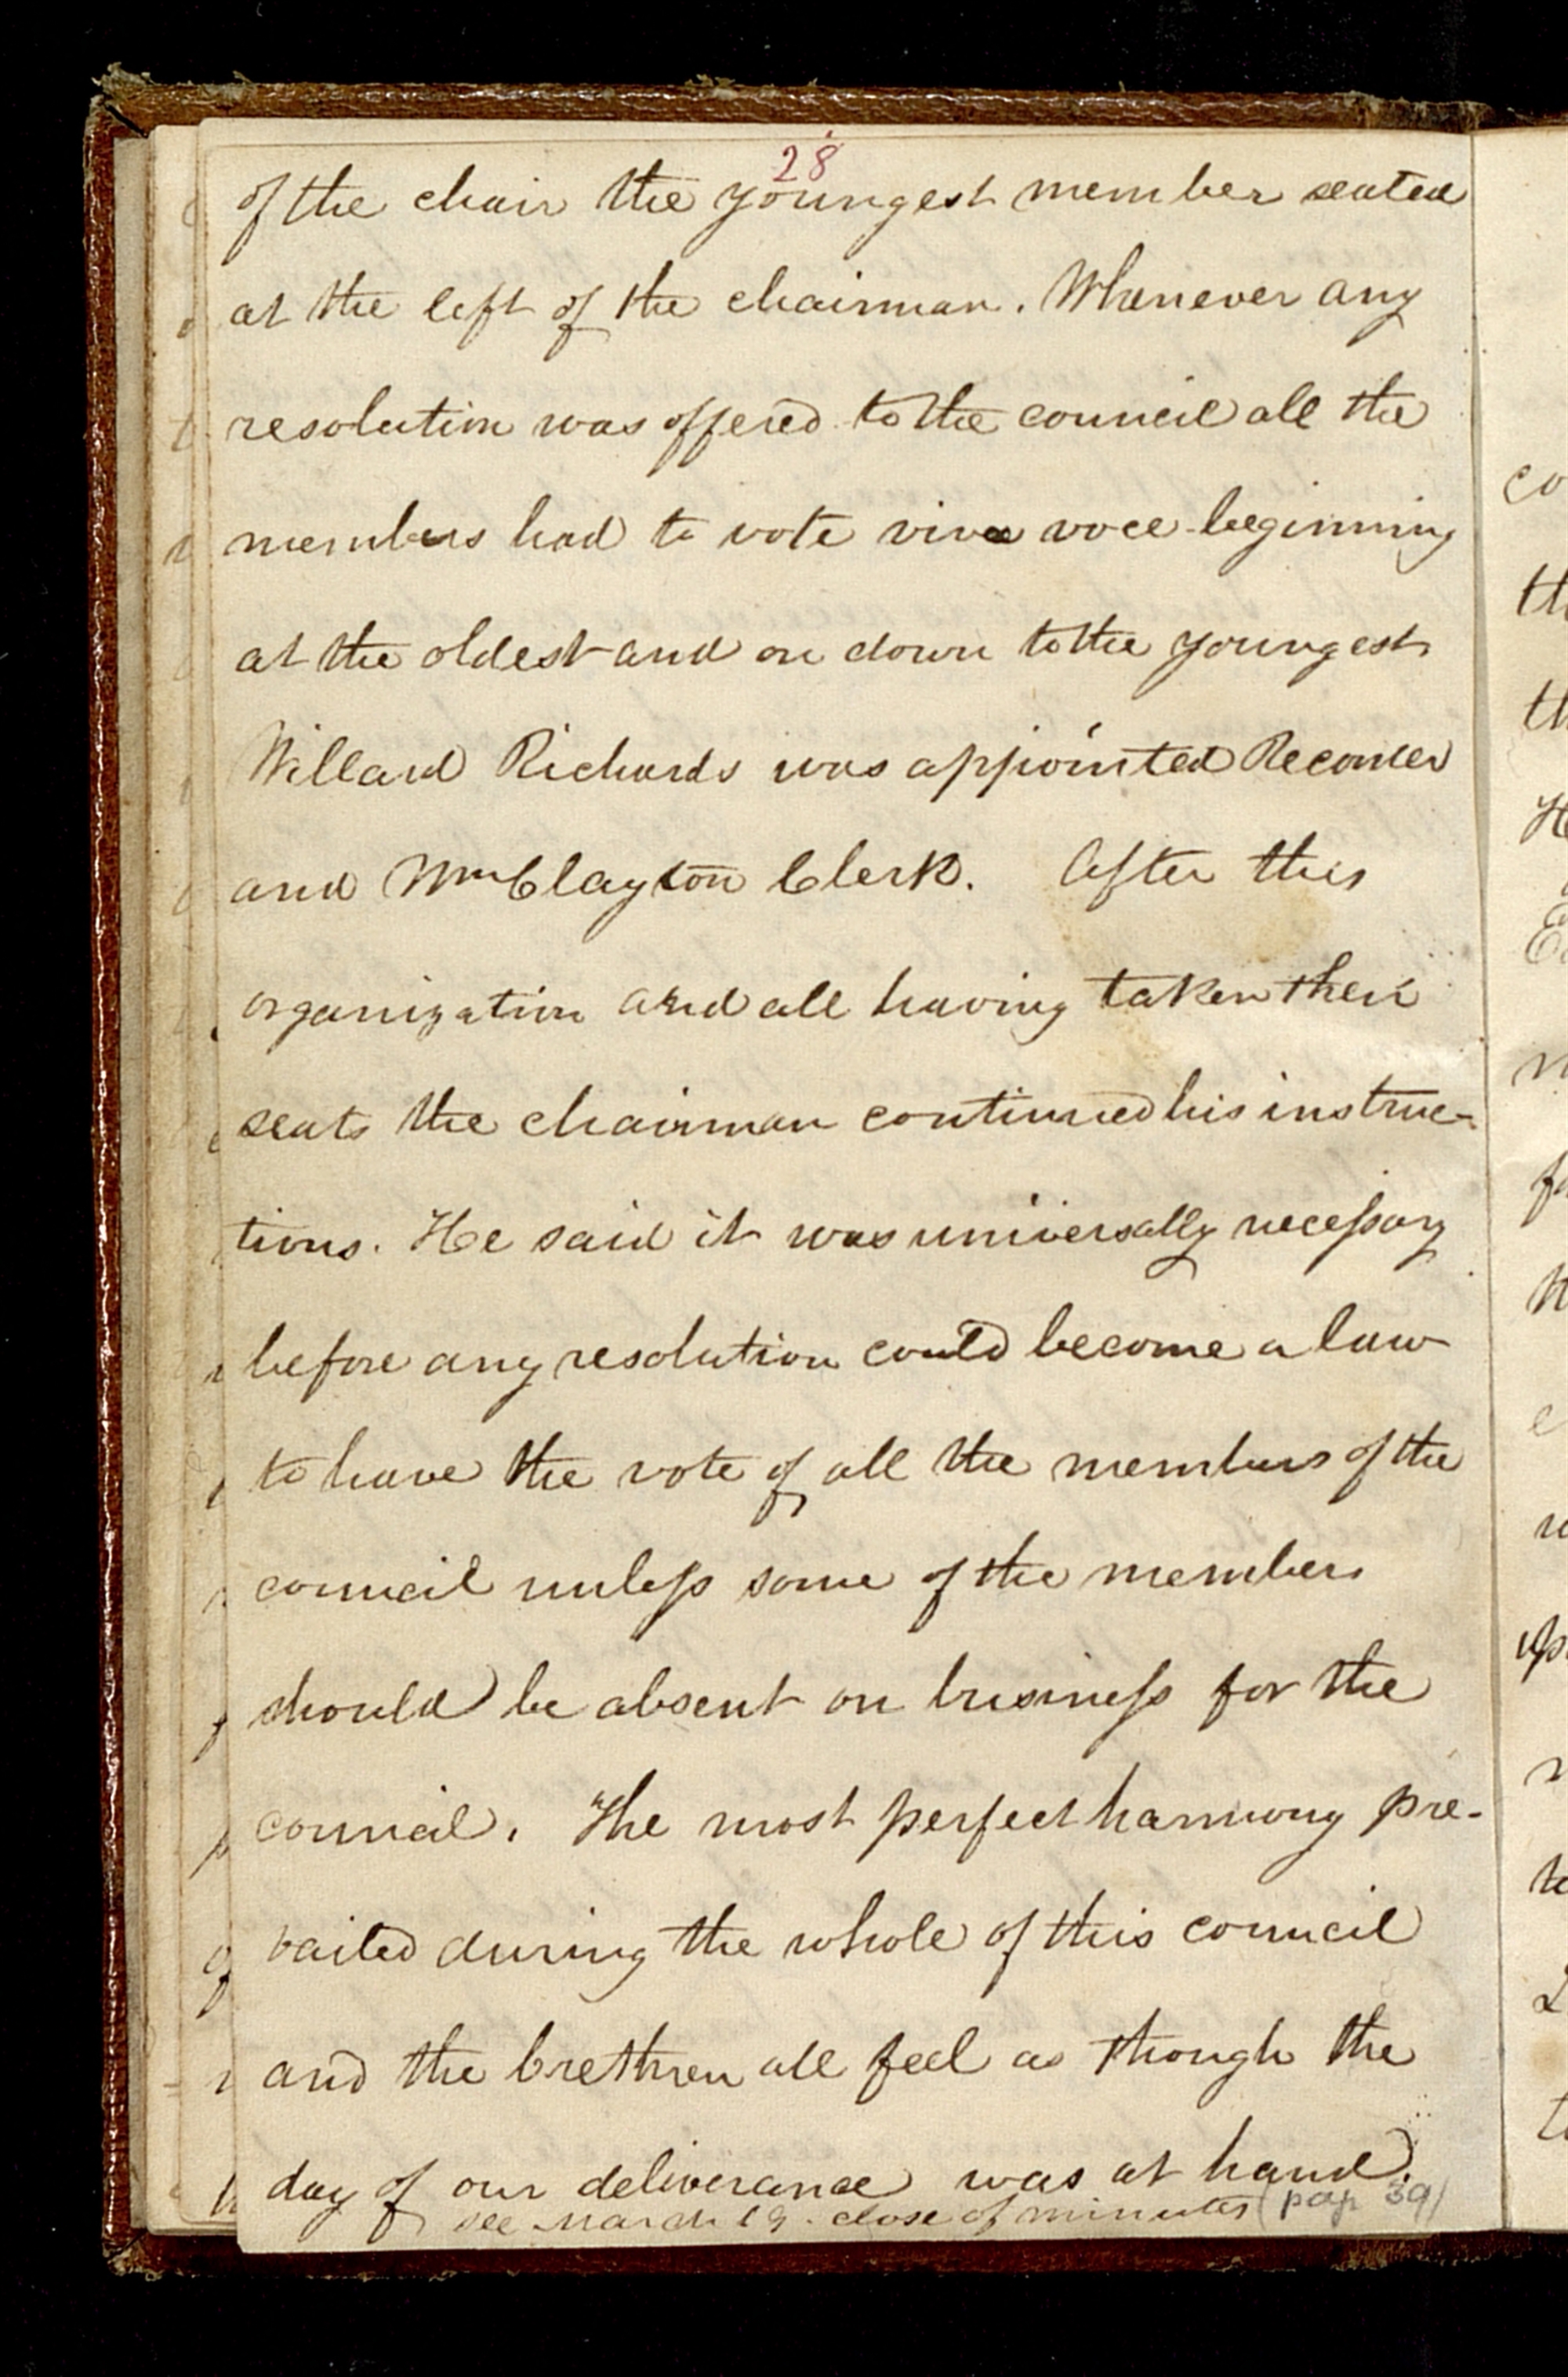 28
of the chair the youngest member seated
at the left of the chairman. Whenever any
resolution was offered to the council all the
members had to vote viva voce beginning
at the oldest and on down to the youngest
Willard Richards was appointed Recorder
and Wm Clayton Clerk. After this
organization and all having taken their
seats the chairman continued his instruc-
tions. He said it was universally necessary
before any resolution could become a law
to have the vote of all the members of the
council unless some of the members
should be absent on business for the
council. The most perfect harmony pre-
vailed during the whole of this council
and the brethren all feel as though the
day of our deliverance was at hand.
see March 19. close of minutes (page 39)